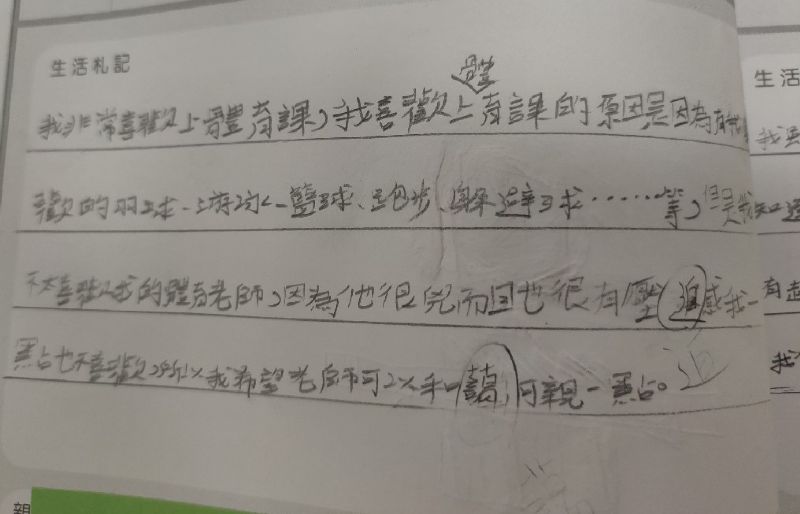 生活札記
體
我非常喜歡上體育課,我喜歡上育課的原因是因為有我
歡的羽球、游泳、籃球、跑步、躲避球……等,但是我
不太喜歡我的體育老師,因為他很兇而且也很有壓迫感我一
點也不喜歡 所以我希望老師可以和藹可親一點。
迫
生活
我
有
我
親